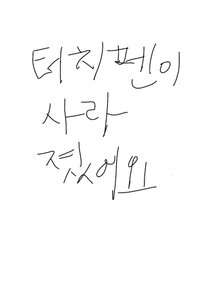 터치펜이
사라
졌어요